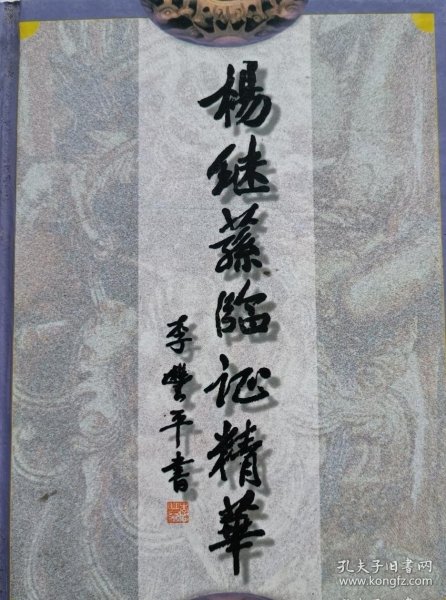 楊继蓀臨证精華
李豐平書
孔夫子旧书网
www.kongfz.com